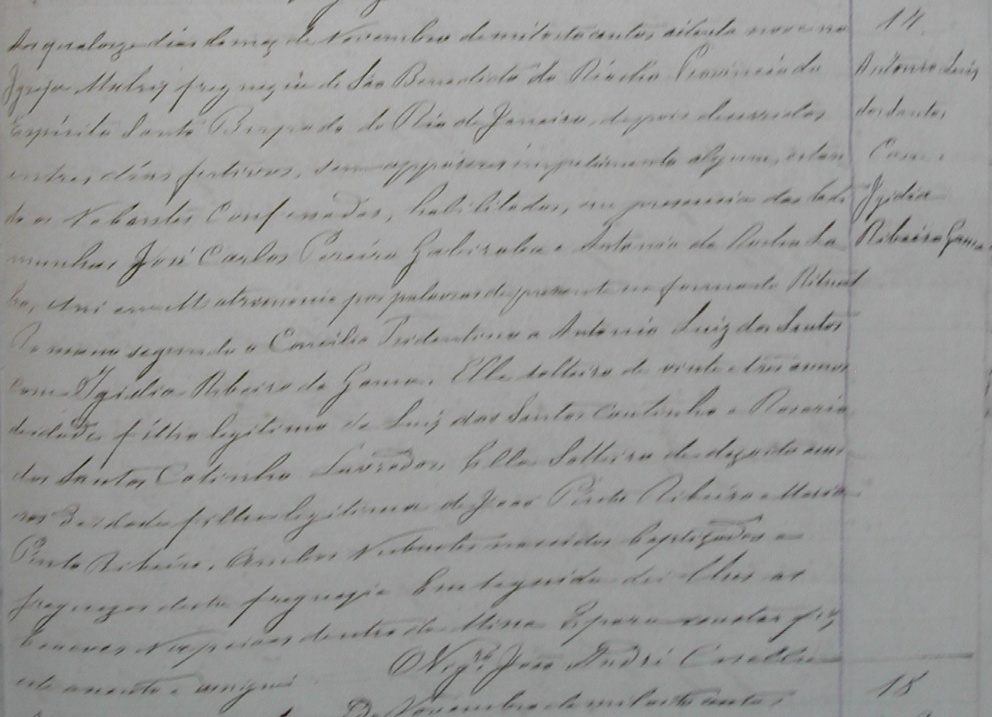 Aos quatorze dias do mez de Novembro de mil oitocentos oitenta nove na
Igreja Matriz freguezia de São Benedicto do Riacho Provincia do
Espirito Santo Bispado do Rio de Janeiro depois de corridos
entre, dias festivos, sem apparecer impedimento algum, estan
do os Nubentes Confessados, habilitados, em presença das teste
munhas José Carlos Pereira e Antonio da Rocha
uni em Matremonio por palavras de presente na forma do Ritual
Romano segundo o Concilio Tridentino a Antonio Luiz dos Santos
com Igidia Ribeiro da Gama. Elle solteiro de vinte e tres annos
de idade filho legitimo de Luiz dos Santos Coutinho e Rosaria
dos Santos Cotinho Lavrador, Ella Solteira de dezoito an
nos de idade filha legitima de João Pinto Ribeiro e Maria
Pinto Ribeiro. Ambos Nubentes nascidos baptizados e
freguezes desta freguezia Em seguida dei lhes as
bencoas Nupciaes dentro da Missa E para constar fiz
este acento e assignei
O Vigr.º João André Casella
14
Antonio Luiz
dos Santos
Com
Igidia
Ribeiro Gama
18
De Novembro de mil oito centos